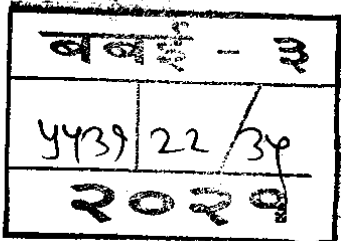 बबई - ३
५५३१ २२ / ३५
२०२१